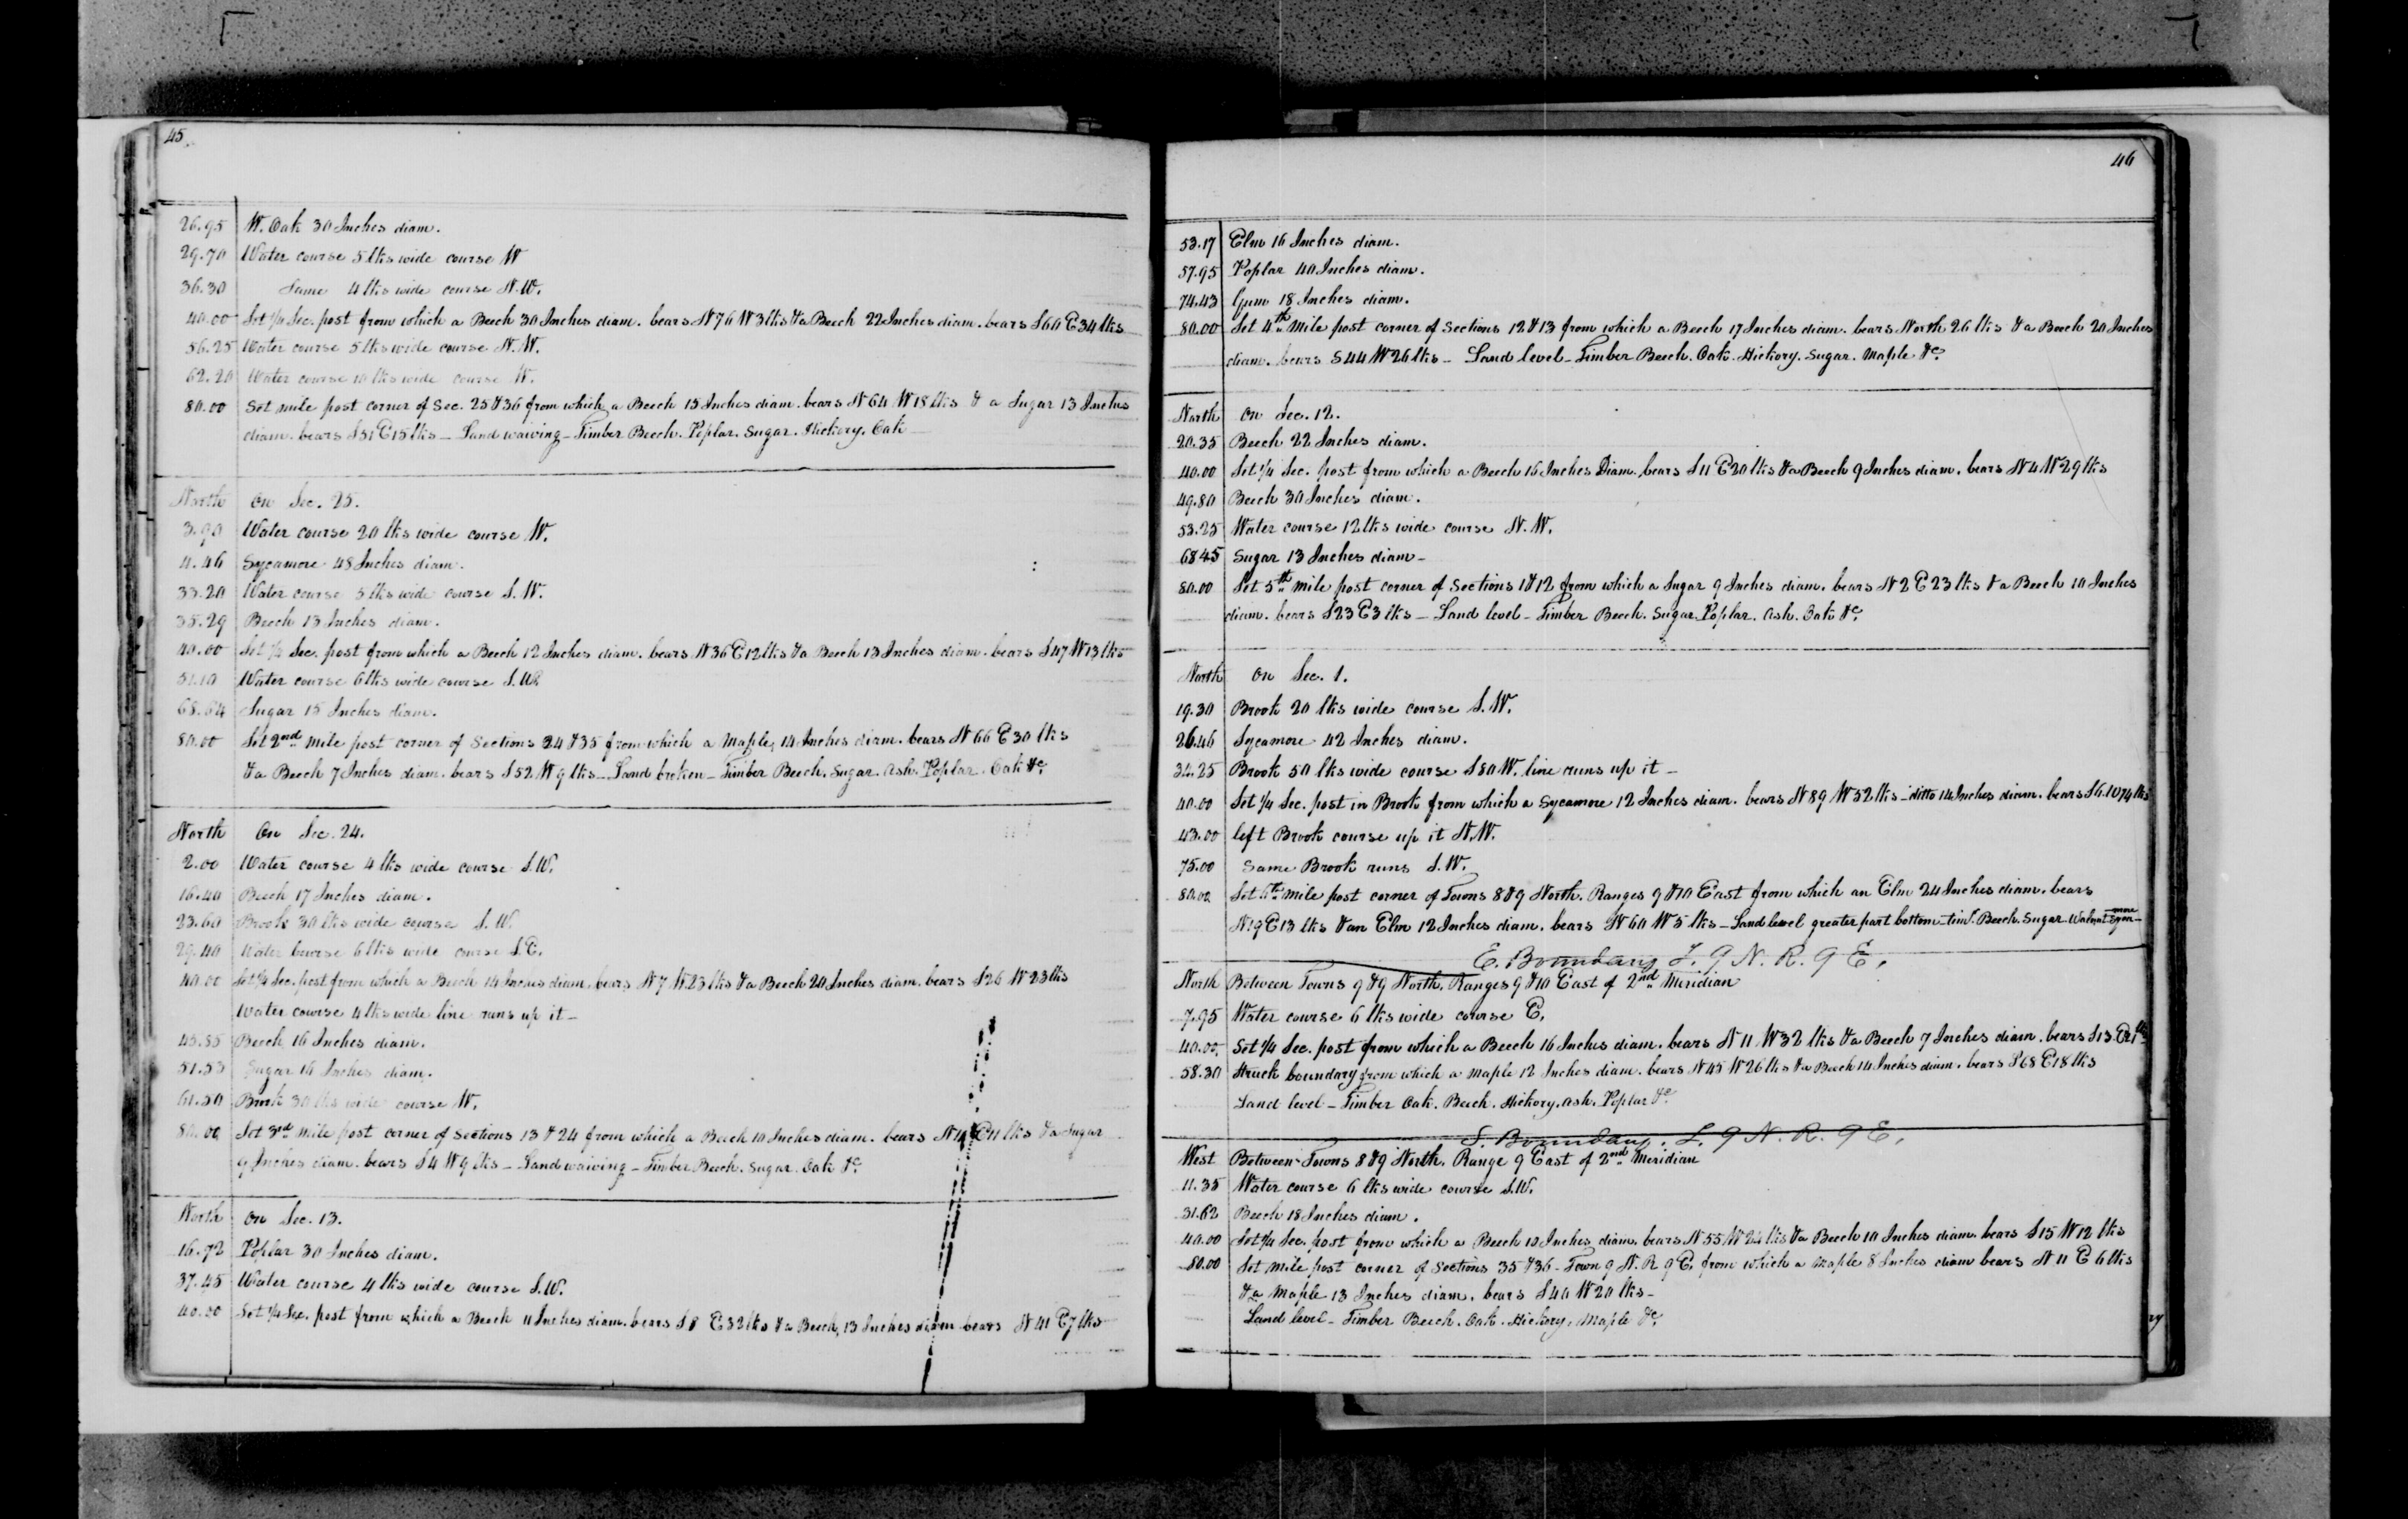 45
26.95 W. Oak 30 Inches diam.
29.70 Water course 5 lks wide course W
36.30 Same 4 lks wide course N.W.
40.00 Set 1/4 Sec. post from which a Beech 30 Inches diam. bears N 76 W 3 lks & a Beech 22 Inches diam. bears S 60 E 34 lks
56.25 Water course 5 lks wide course N.W.
62.20 Water course 10 lks wide course W.
80.00 Set mile post corner of Sec. 25 & 36 from which a Beech 15 Inches diam. bears N 64 W 18 lks & a Sugar 13 Inches
diam. bears S 51 E 15 lks — Land waiving — Timber Beech. Poplar. Sugar. Hickory. Oak
North on Sec. 25.
3.90 Water course 20 lks wide course W.
4.46 Sycamore 48 Inches diam.
33.20 Water course 5 lks wide course S.W.
35.29 Beech 13 Inches diam.
40.00 Set 1/4 Sec. post from which a Beech 12 Inches diam. bears N 36 E 12 lks & a Beech 13 Inches diam. bears S 47 W 13 lks
51.10 Water course 6 lks wide course S.W.
68.64 Sugar 15 Inches diam.
80.00 Set 2nd mile post corner of Sections 24 & 35 from which a Maple 14 Inches diam. bears N 66 E 30 lks
& a Beech 7 Inches diam. bears S 52 W 9 lks — Land broken — Timber Beech. Sugar. Ash. Poplar. Oak &c
North On Sec. 24.
2.00 Water course 4 lks wide course S.W.
16.40 Beech 17 Inches diam.
23.60 Brook 30 lks wide course S.W.
29.40 Water course 6 lks wide course S.E.
40.00 Set 1/4 Sec. post from which a Beech 14 Inches diam. bears N 7 W 23 lks & a Beech 20 Inches diam. bears S 26 W 23 lks
Water course 4 lks wide line runs up it —
45.85 Beech 16 Inches diam.
51.53 Sugar 16 Inches diam.
61.50 Brook 30 lks wide course W.
80.00 Set 3rd mile post corner of Sections 13 & 24 from which a Beech 10 Inches diam. bears N 11 E 11 lks & a Sugar
9 Inches diam. bears S 4 W 9 lks — Land waiving — Timber Beech. Sugar. Oak &c
North on Sec. 13.
16.72 Poplar 30 Inches diam.
37.45 Water course 4 lks wide course S.W.
40.00 Set 1/4 Sec. post from which a Beech 11 Inches diam. bears S 8 E 32 lks & a Beech 13 Inches diam bears N 41 E 7 lks
46
53.17 Elm 16 Inches diam.
57.95 Poplar 40 Inches diam.
74.43 Gum 18 Inches diam.
80.00 Set 4th Mile post corner of Sections 12 & 13 from which a Beech 17 Inches diam. bears North 26 lks & a Beech 20 Inches
diam. bears S 44 W 26 lks — Land level — Timber Beech. Oak. Hickory. Sugar. Maple &c
North on Sec. 12.
20.35 Beech 22 Inches diam.
40.00 Set 1/4 Sec. post from which a Beech 16 Inches Diam. bears S 11 E 20 lks & a Beech 9 Inches diam. bears N 4 W 29 lks
49.80 Beech 30 Inches diam.
53.25 Water course 12 lks wide course N.W.
68.45 Sugar 13 Inches diam —
80.00 Set 5th mile post corner of Sections 1 & 12 from which a Sugar 9 Inches diam. bears N 2 E 23 lks & a Beech 10 Inches
diam. bears S 23 E 3 lks — Land level — Timber Beech. Sugar. Poplar. Ash. Oak &c.
North on Sec. 1.
19.30 Brook 20 lks wide course S.W.
26.46 Sycamore 42 Inches diam.
34.25 Brook 50 lks wide course S 80 W. line runs up it —
40.00 Set 1/4 Sec. post in Brook from which a Sycamore 12 Inches diam. bears N 89 W 52 lks — ditto 14 Inches diam. bears S 6. W 74 lks
43.00 left Brook course up it N.W.
75.00 Same Brook runs S.W.
80.00 Set 6th mile post corner of Towns 8 & 9 North. Ranges 9 & 10 East from which an Elm 24 Inches diam. bears
N 19 E 13 lks & an Elm 12 Inches diam. bears N 60 W 5 lks — Land level greater part bottom — timr. Beech. Sugar. Walnut
E. Boundary T. 9 N. R. 9 E.
North Between Towns 9 & 9 North, Ranges 9 & 10 East of 2nd Meridian
7.95 Water course 6 lks wide course E.
40.00. Set 1/4 Sec. post from which a Beech 16 Inches diam. bears N 11 W 32 lks & a Beech 7 Inches diam. bears S 13 E
58.30 Struck boundary from which a Maple 12 Inches diam. bears N 45 W 26 lks & a Beech 14 Inches diam. bears S 68 E 18 lks
Land level — Timber Oak. Beech. Hickory. Ash. Poplar &c
S. Boundary. T. 9 N. R. 9 E.
West Between Towns 8 & 9 North. Range 9 East of 2nd Meridian
11.35 Water course 6 lks wide course S.W.
31.62 Beech 18 Inches diam.
40.00 Set 1/4 Sec. post from which a Beech 10 Inches diam. bears N 55 W 24 lks & a Beech 10 Inches diam. bears S 15 W 12 lks
80.00 Set mile post corner of Sections 35 & 36 — Town 9 N. R 9 E. from which a Maple 8 Inches diam bears N 11 E 6 lks
& a Maple 13 Inches diam. bears S 40 W 20 lks —
Land level — Timber Beech. Oak. Hickory. Maple &c.